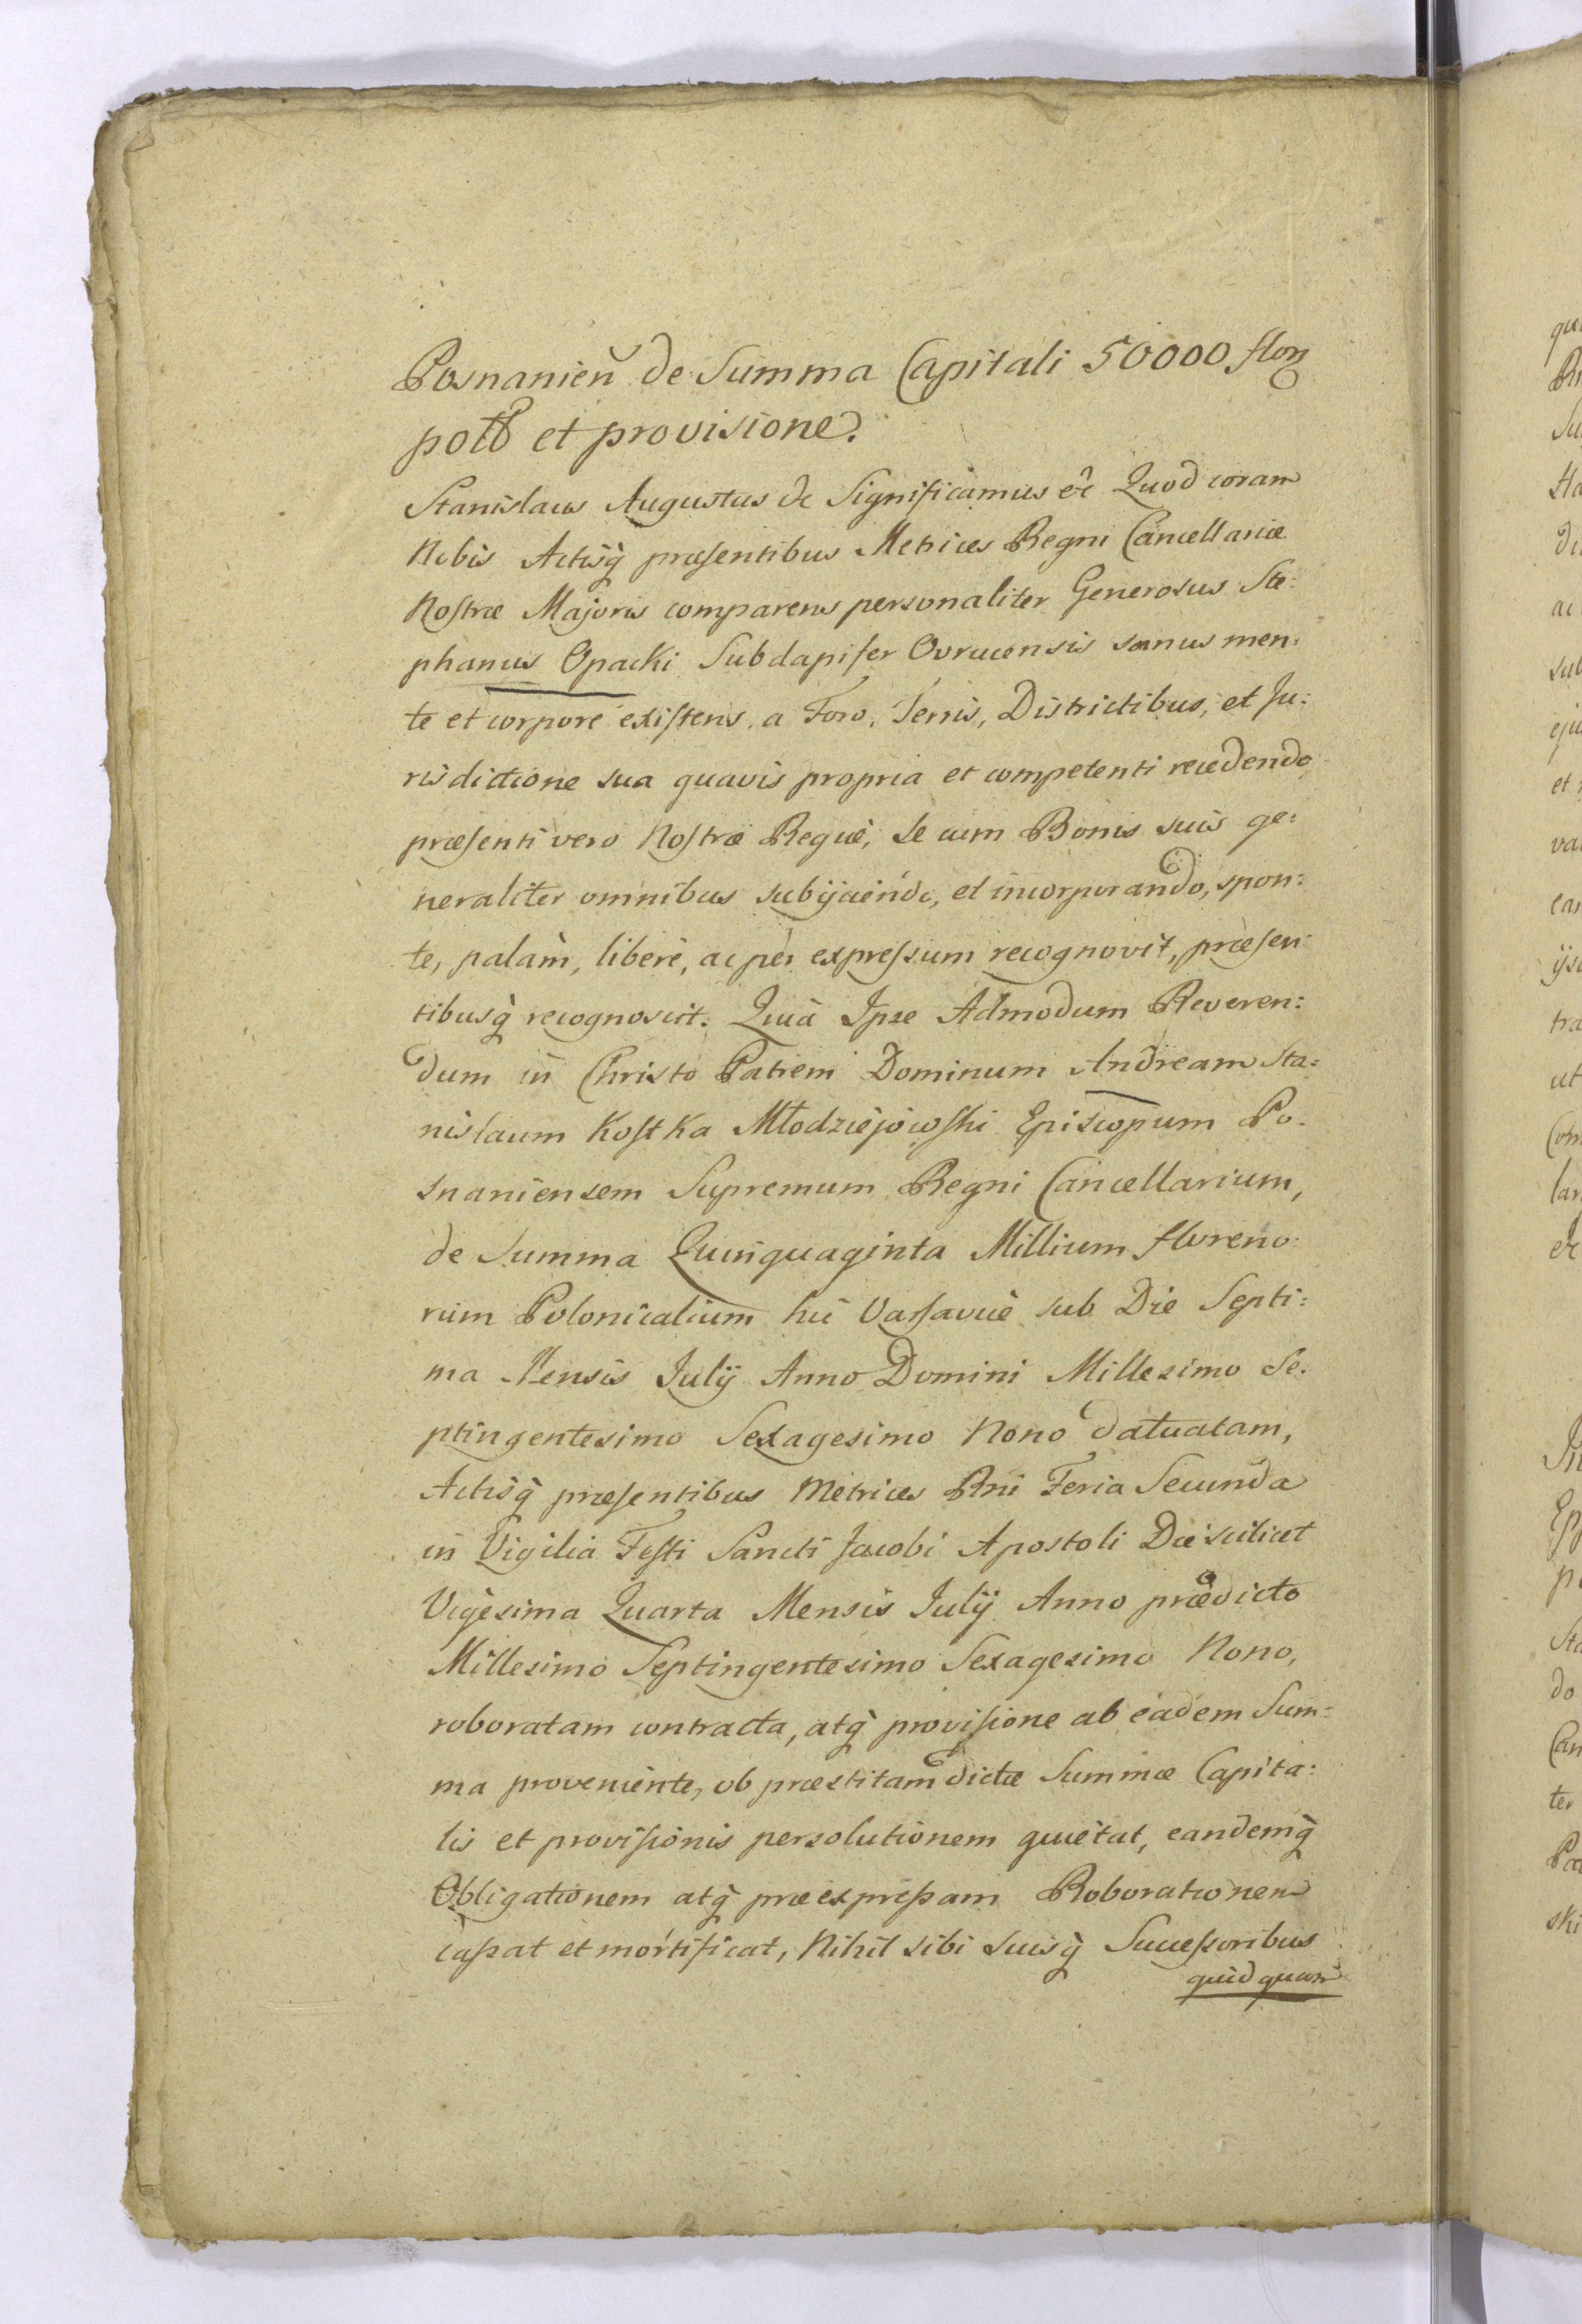 Posnanień de Summa Capitali 50000 flor
polb et provisione.
Stanislaus Augustus &c Significamus &c Quod coram
Nobis Actisq̀ præsentibus Metrices Regni Cancellariæ
Nostræ Majoris comparens personaliter Generosus Ste:
phanus Opacki Subdapifer Ovrucensis sanus men:
te et corpore existens, a Foro, Terris, Districtibus, et Ju:
risdictione sua quavis propria et competenti recedendo
præsenti vero Nostræ Regiæ, se cum Bonis suis ge:
neraliter omnibus subijciendo, et incorporando, spon:
te, palàm, liberè, ac per expressum recognovit, præsen
tibusq̀ recognoscit: Quià Ipse Admodum Reveren:
dum in Christo Patrem Dominum Andream Sta:
nislaum Kostka Młodziejowski Episcopum Po:
snaniensem Supremum Regni Cancellarium,
de Summa Quinquaginta Millium floreno:
rum Polonicalium hic Varsaviæ sub Die Septi:
ma Mensis Julij Anno Domini Millesimo Se:
ptingentesimo Sexagesimo Nono datuatam,
Actisq̀ præsentibus Metrices Rni Feria Secunda
in Vigilia Festi Sancti Jacobi Apostoli Die scilicet
Vigesima Quarta Mensis Julij Anno prædicto
Millesimo Septingentesimo Sexagesimo Nono,
roboratam contracta, atq̀ provisione ab eadem Sum:
ma proveniente, ob præstitam dictæ Summæ Capita:
lis et provisionis persolutionem quietat, eandemq̀
Obligationem atq̀ præexpressam Roborationem
cassat et mortificat, Nihil sibi suisq̀ Successoribus
quidquam